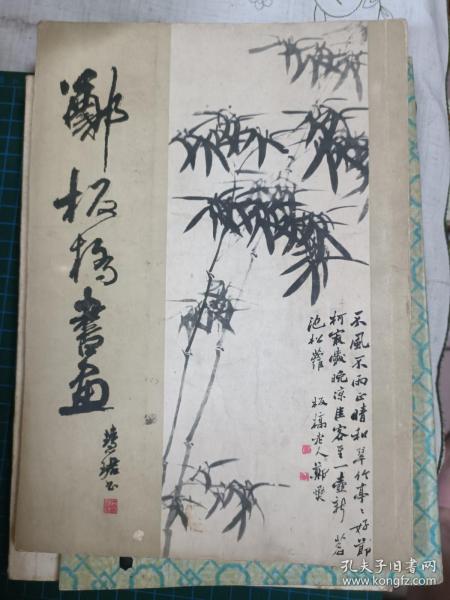 鄭板橋書画
不風不雨正晴和翠竹亭〻好節
柯最愛晚涼佳客至一壺新茗
泡松蘿 板橋老人鄭燮
孔夫子旧书网
www.kongfz.com